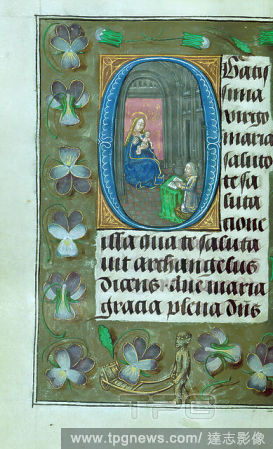 O Batis
sima
virgo
maria
saluto
te sa
luta
tione
illa qua te saluta
uit archangelus
dicens · Aue maria
gracia plena dns
TPG
www.tpgnews.com/ 達志影像